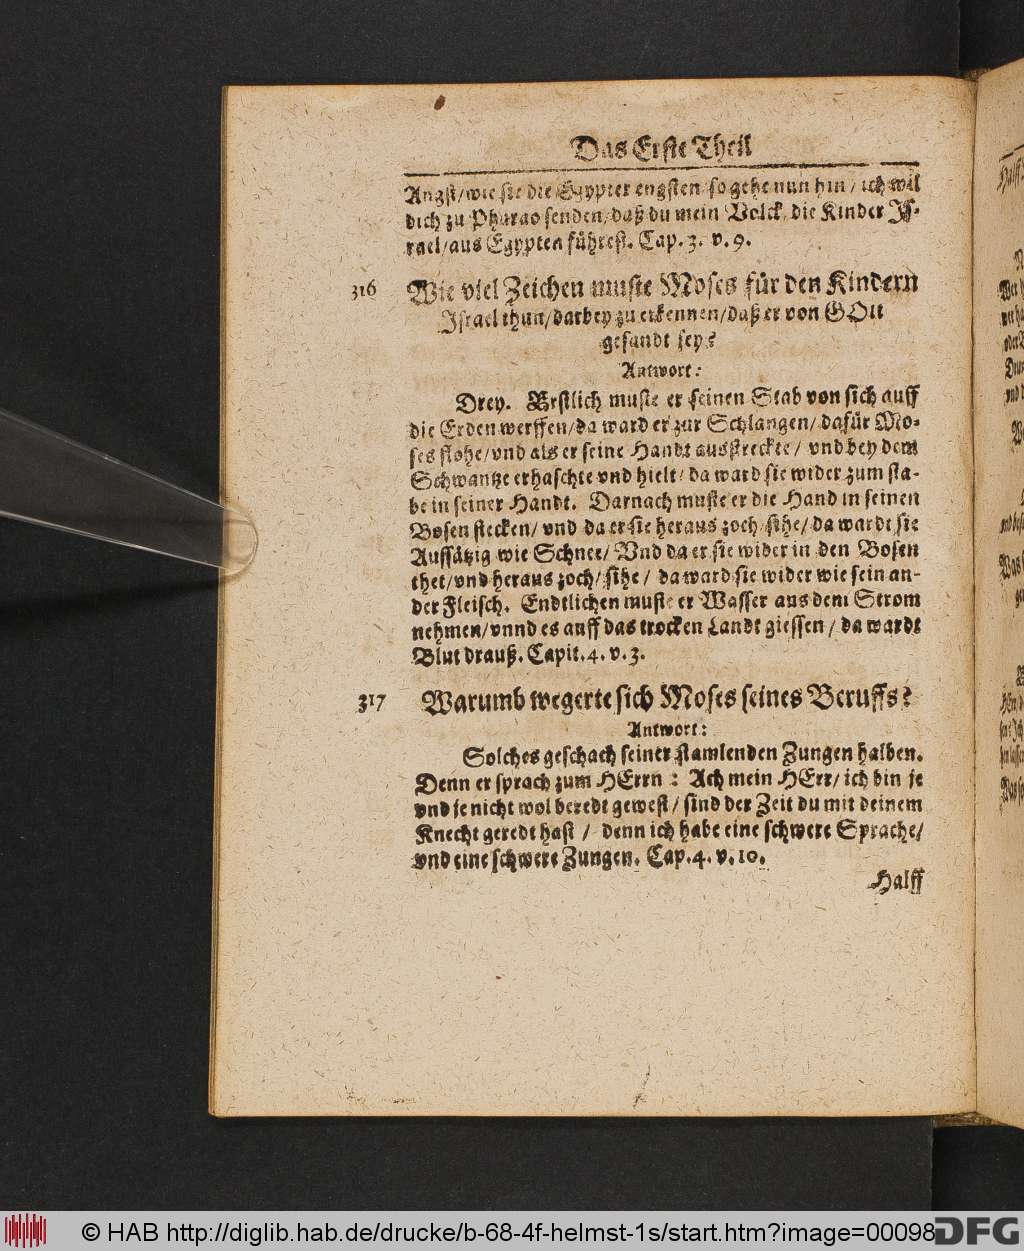 Das Erste Theil
Angst/wie sie die Egypter engsten/so gehe nun hin/ich wil
dich zu Pharao senden/daß du mein Volck/die Kinder Js-
rael/aus Egypten führest. Cap. 3. v. 9.
316 Wie viel Zeichen muste Moses für den Kindern
Jsrael thun/darbey zu erkennen/daß er von GOtt
gesandt sey?
Antwort:
Drey. Erstlich muste er seinen Stab von sich auff
die Erden werffen/da ward er zur Schlangen/dafür Mo-
ses flohe/vnd als er seine Handt ausstreckte/ vnd bey dem
Schwantze erhaschte vnd hielt/da ward sie wider zum sta-
be in seiner Handt. Darnach muste er die Hand in seinen
Bosen stecken/ vnd da er sie heraus zoch/sihe/da wardt sie
Aussätzig wie Schnee/ Vnd da er sie wider in den Bosen
thet/vnd heraus zoch/ sihe/ da ward sie wider wie sein an-
der Fleisch. Endtlichen muste er Wasser aus dem Strom
nehmen/vnnd es auff das trocken Landt giessen/ da wardt
Blut drauß. Capit. 4. v. 3.
317 Warumb wegerte sich Moses seines Beruffs?
Antwort:
Solches geschach seiner stamlenden Zungen halben.
Denn er sprach zum HErrn: Ach mein HErr/ich bin je
vnd je nicht wol beredt gewest/sind der Zeit du mit deinem
Knecht geredt hast/ denn ich habe eine schwere Sprache/
vnd eine schwere Zungen. Cap. 4. v. 10.
Halff
© HAB http://diglib.hab.de/drucke/b-68-4f-helmst-1s/start.htm?image=00098
DFG